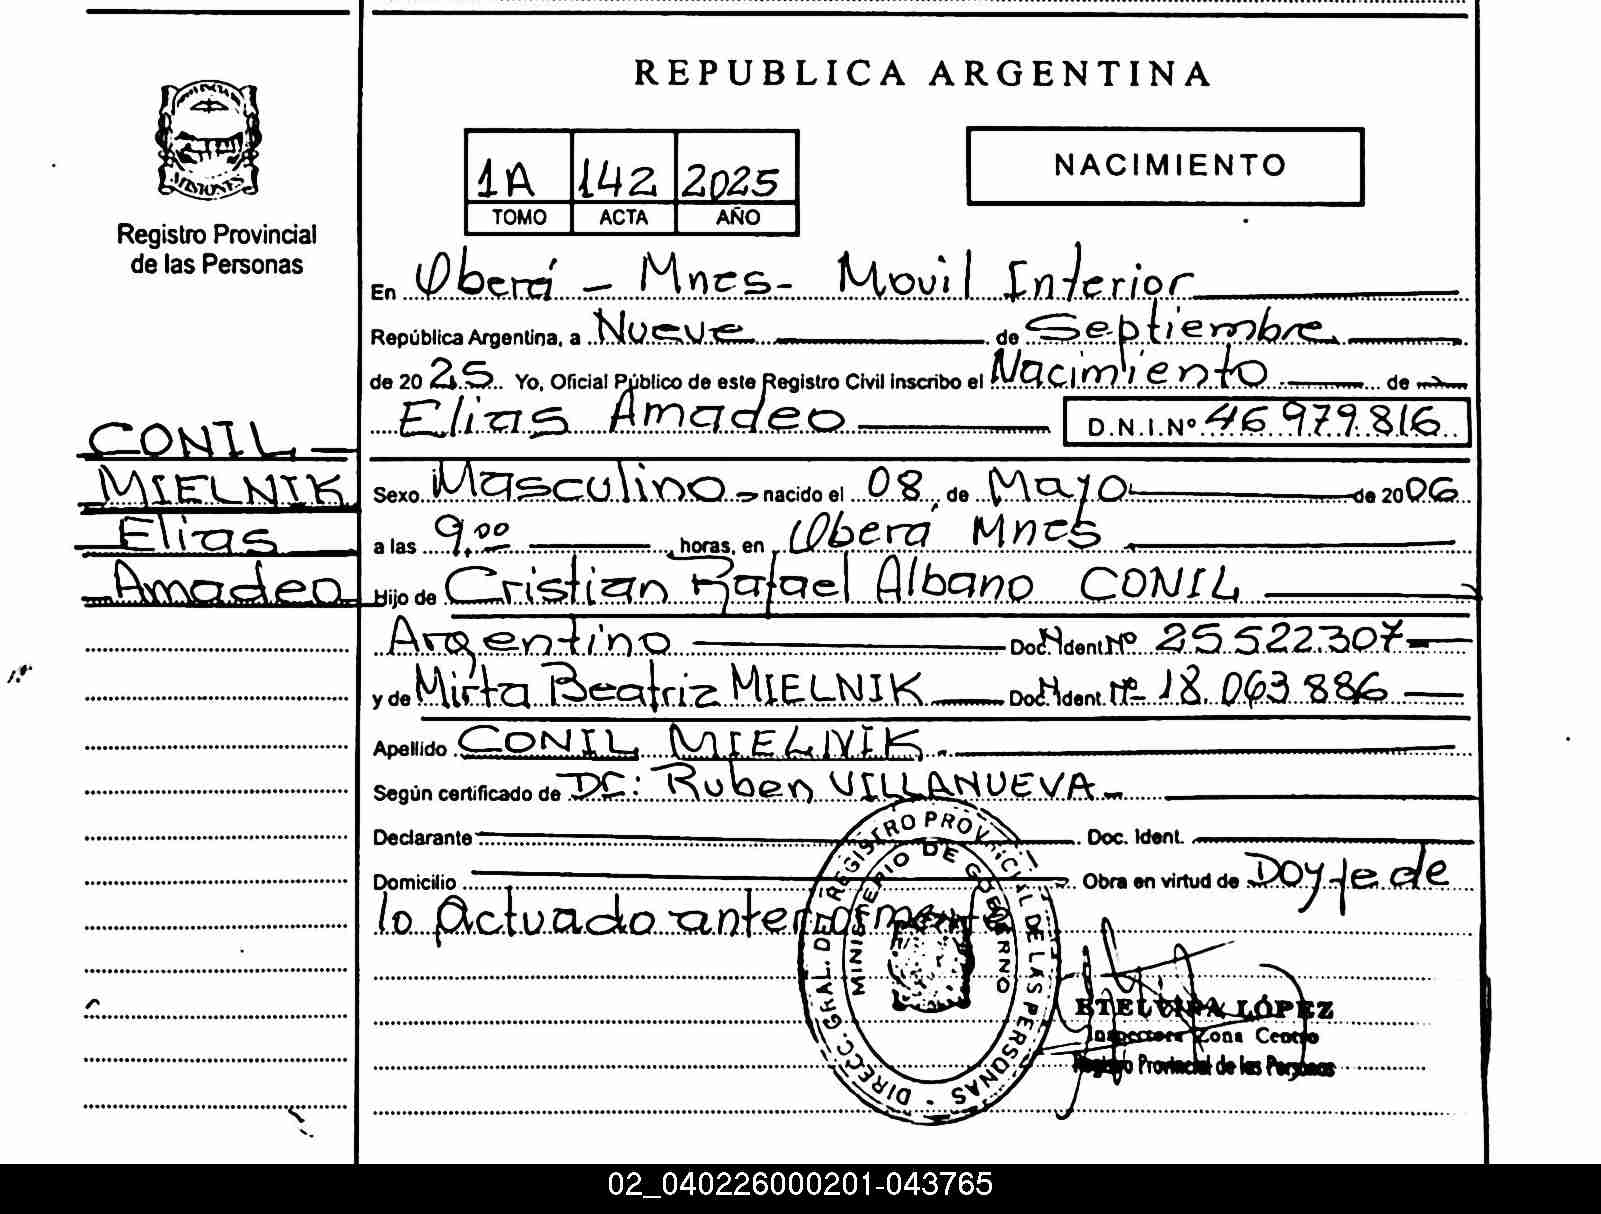 REPUBLICA ARGENTINA
MISIONES
Registro Provincial
de las Personas
1A 142 2025
TOMO ACTA AÑO
NACIMIENTO
En Oberá - Mnes- Movil Interior
República Argentina, a Nueve de Septiembre
de 2025 Yo, Oficial Público de este Registro Civil inscribo el Nacimiento de
Elias Amadeo D.N.I.Nº 46.979.816
CONIL
MIELNIK
Elias
Amadeo
Sexo Masculino nacido el 08 de Mayo de 2006
a las 9,00 horas, en Oberá Mnes
Hijo de Cristian Rafael Albano CONIL
Argentino Doc. Ident Nº 25.522.307
y de Mirta Beatriz MIELNIK Doc. Ident. Nº 18.063.886
Apellido CONIL MIELNIK.
Según certificado de DC: Ruben VILLANUEVA
Declarante Doc. Ident.
Domicilio Obra en virtud de Doy fe de
lo actuado anteriormente
DIRECC. GRAL. DEL REGISTRO PROVINCIAL DE LAS PERSONAS
MINISTERIO DE GOBIERNO
ETELVINA LÓPEZ
Inspectora Zona Centro
Registro Provincial de las Personas
02_040226000201-043765